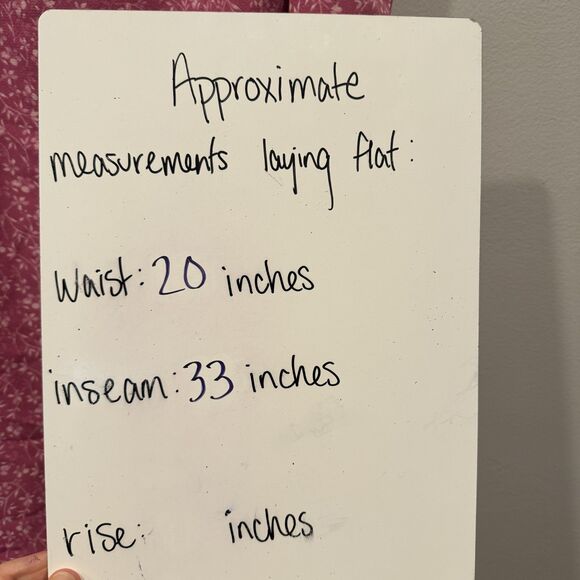 Approximate
measurements laying flat:
Waist: 20 inches
inseam: 33 inches
rise: inches